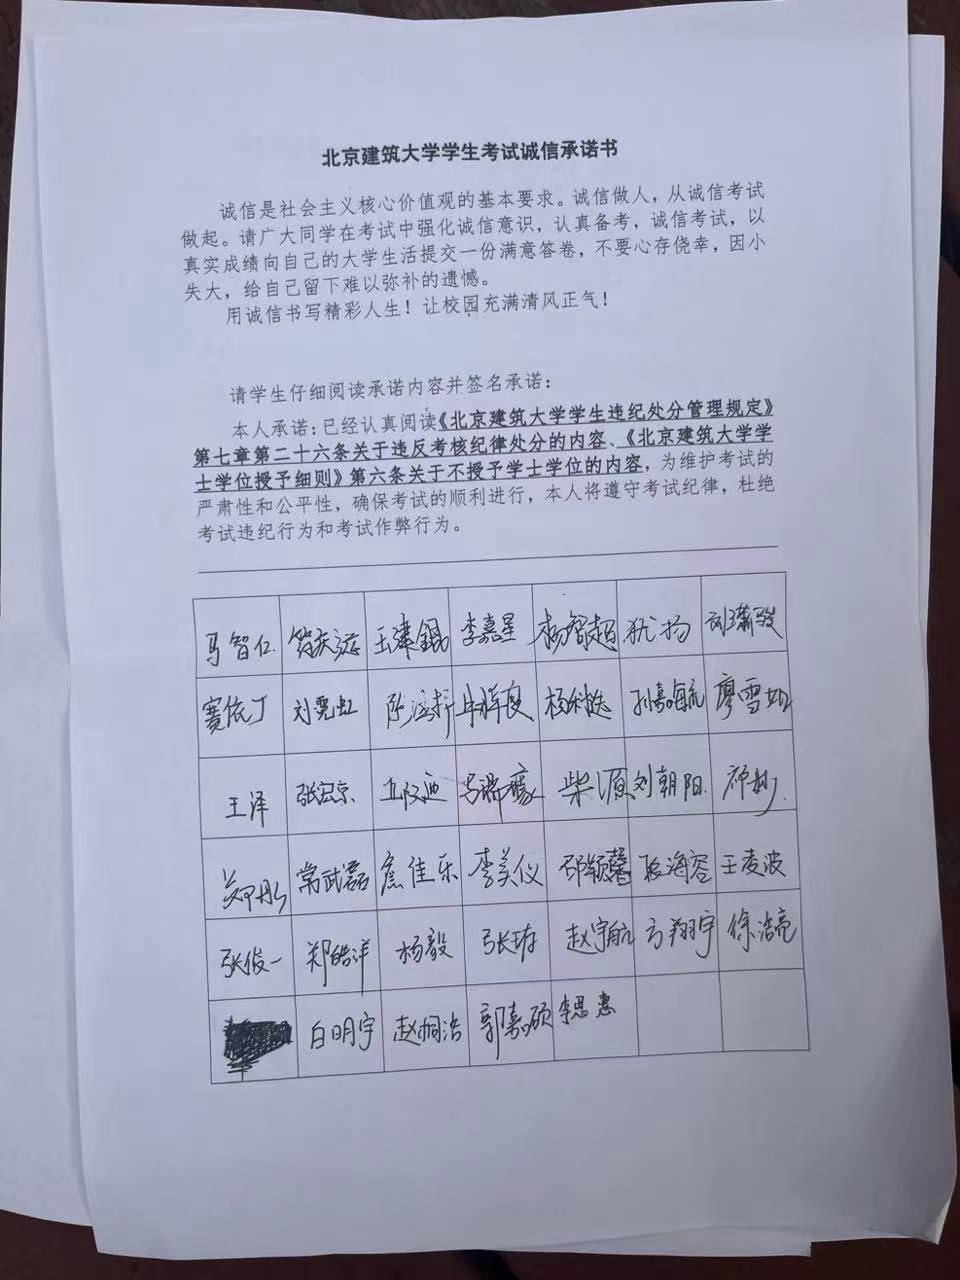 北京建筑大学学生考试诚信承诺书
诚信是社会主义核心价值观的基本要求。诚信做人，从诚信考试
做起。请广大同学在考试中强化诚信意识，认真备考，诚信考试，以
真实成绩向自己的大学生活提交一份满意答卷，不要心存侥幸，因小
失大，给自己留下难以弥补的遗憾。
用诚信书写精彩人生！让校园充满清风正气！
请学生仔细阅读承诺内容并签名承诺：
本人承诺：已经认真阅读《北京建筑大学学生违纪处分管理规定》
第七章第二十六条关于违反考核纪律处分的内容、《北京建筑大学学
士学位授予细则》第六条关于不授予学士学位的内容，为维护考试的
严肃性和公平性，确保考试的顺利进行，本人将遵守考试纪律，杜绝
考试违纪行为和考试作弊行为。
马智仁 王津锟 李嘉星 杨智超 犹扬
赛依丁 刘霓虹 孙嘉毓
王泽 张宏京 柴源 刘朝阳 祁彬
郑彤 常武磊 焦佳乐 李美仪 邵颖馨 张海容 王凌波
张俊一 郑皓洋 杨毅 赵宇航 方翔宇 徐浩亮
白明宇 赵桐浩 郭嘉硕 李思惠